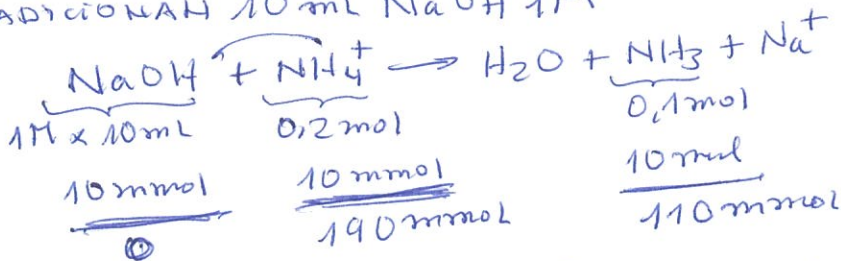 ADICIONAN 10 mL NaOH 1M
NaOH + NH4+ → H2O + NH3 + Na+
1M x 10mL 0,2mol 0,1mol
10mmol 10mmol 10mmol
0 190mmol 110mmol